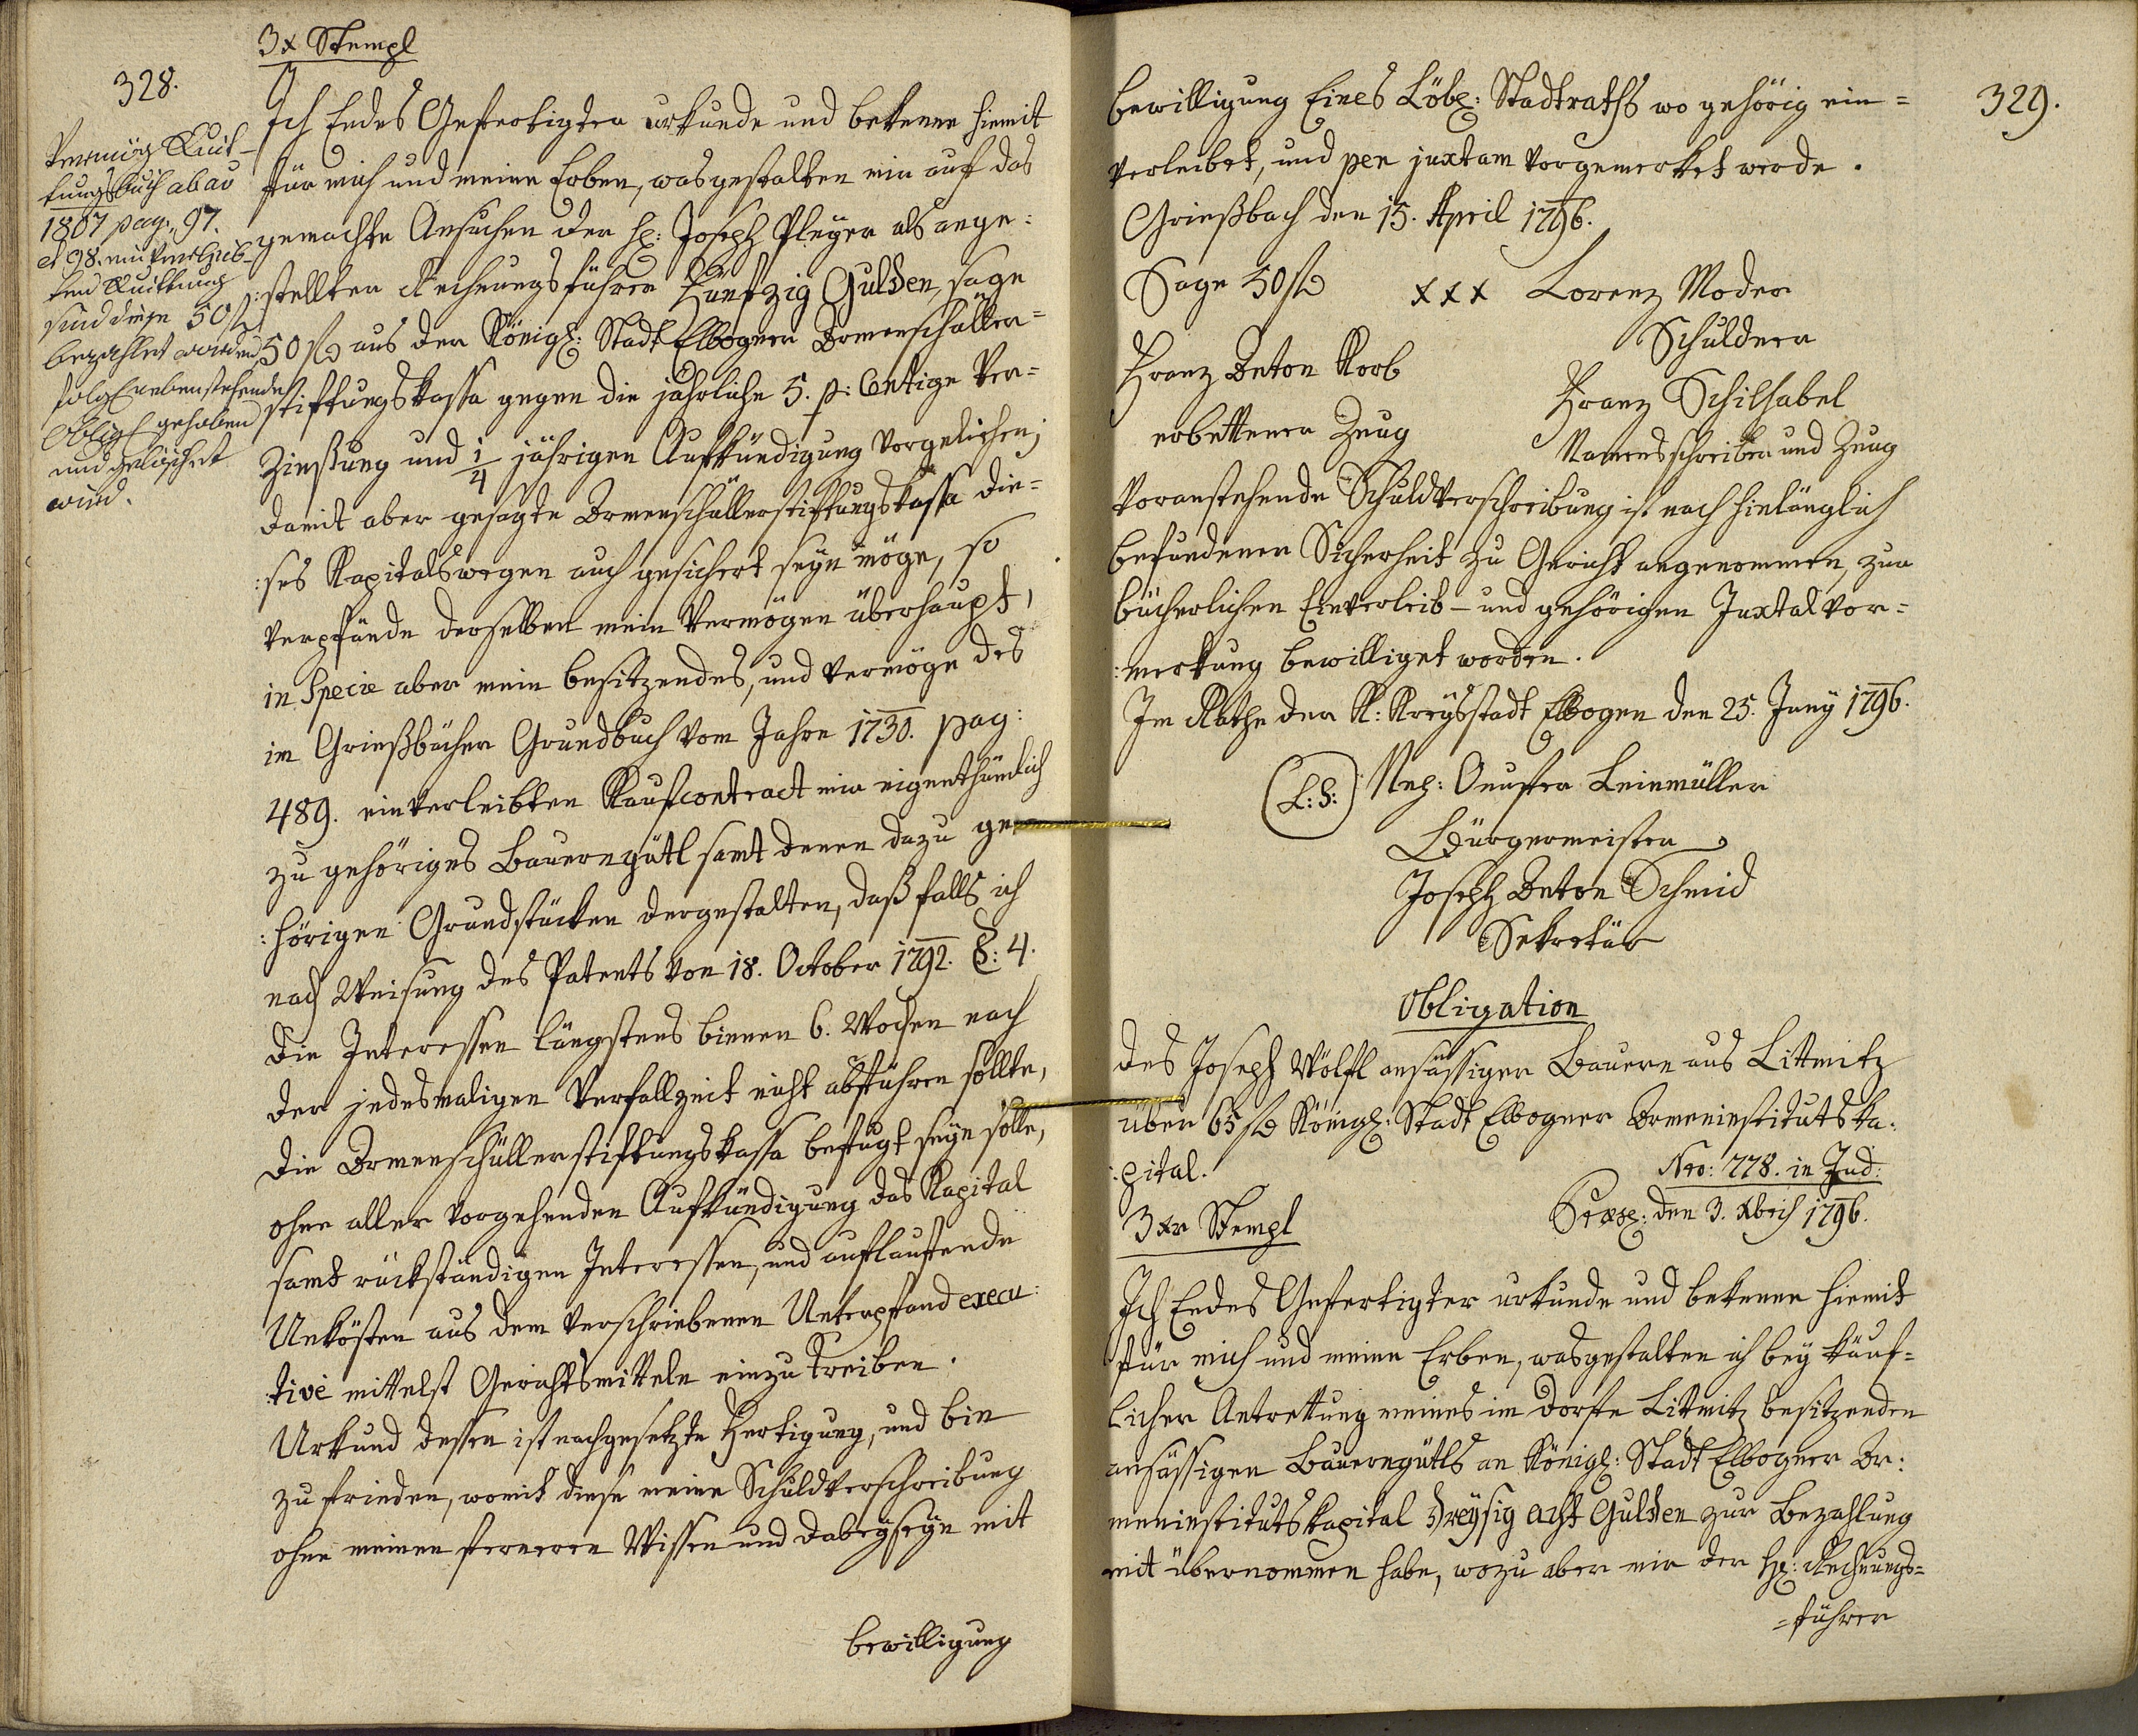 3x Stempl
328.
Ich Endes Gefertigter urkunde und bekenne hiemit
für mich und meine Erben, was gestalten mir auf das
gemachte Ansuchen der H: Joseph Pleyer als ange:
:stellten Rechnungsführer Fünfzig Gulden, sage
50 f aus der Königl: Stadt Elbogner Armenschüller=
stiftungskassa gegen die jährliche 5. p: Centige Ver=
Zinßung und 1/4 jährigen Aufkündigung vorgeliehen;
damit aber gesagte Armenschüllerstiftungskassa die=
:ses Kapitalswegen auch gesichert seyn möge, so
verpfände derselben mein Vermögen überhaupt,
in Specie aber mein besitzendes, und vermöge des
im Grießbächer Grundbuch vom Jahre 1730. pag:
489. einverleibten Kaufcontract mir eigenthümlich
zu gehöriges Bauerngütl samt denen dazu ge
:hörigen Grundstücken dergestalten, daß falls ich
nach Weisung des Patents von 18. October 1792. §: 4.
die Interessen längstens binnen 6. Wochen nach
der jedesmaligen Verfallzeit nicht abführen sollte,
die Armenschüllerstiftungskassa befugt seyn solle,
ohne aller vorgehenden Aufkündigung das Kapital
samt rückständigen Interessen, und auflaufende
Unkösten aus dem verschriebenen Unterpfand execu:
:tive mittelst Gerichtsmitteln einzutreiben.
Urkund dessen ist nachgesetzte Fertigung, und bin
zu frieden, womit diese meine Schuldverschreibung
ohne meinen ferneren Wissen und Dabeyseyn mit
bewilligung
Vermög Quit-
tungsbuch ab ao
1807 pag: 97.
et 98. einverleib-
ten Quittung
sind diese 50 f
bezahlet worden
folgl nebenstehende
Obligl gehoben
und gelöschet
wird.
329.
bewilligung Eines Löbl: Stadtraths wo gehörig ein=
verleibet, und per juxtam vorgemerket werde.
Grießbach den 15. April 1796.
Sage 50 f xxx Lorenz Moder
Schuldner
Franz Anton Korb
erbettener Zeug
Franz Schilhabel
Namensschreiber und Zeug
Voranstehende Schuldverschreibung ist nach hinlänglich
befundener Sicherheit zu Gericht angenommen, zur
bücherlichen Einverleib- und gehörigen Juxtal vor=
:merkung bewilliget worden.
Im Rathe der K: Kreysstadt Elbogen den 25. Juny 1796.
(L: S:) Onufer Leinmüller
Bürgermeister
Joseph Anton Schmid
Sekretär
Obligation
des Joseph Wölfl ansässigen Bauern aus Littmitz
über 65 f Königl: Stadt Elbogner Armeninstitutska:
:pital.
Nro: 778. in Jud:
3xr Stempl
Præs: den 3. Xbris 1796.
Ich Endes Gefertigter urkunde und bekenne hiemit
für mich und meine Erben, wasgestalten ich bey käuf=
licher Antrettung meines im Dorfe Littmitz besitzenden
ansässigen Bauerngütls an Königl: Stadt Elbogner Ar:
meninstitutskapital Dreysig acht Gulden zur Bezahlung
mit übernommen habe, wozu aber mir der H: Rechnungs=
=führer